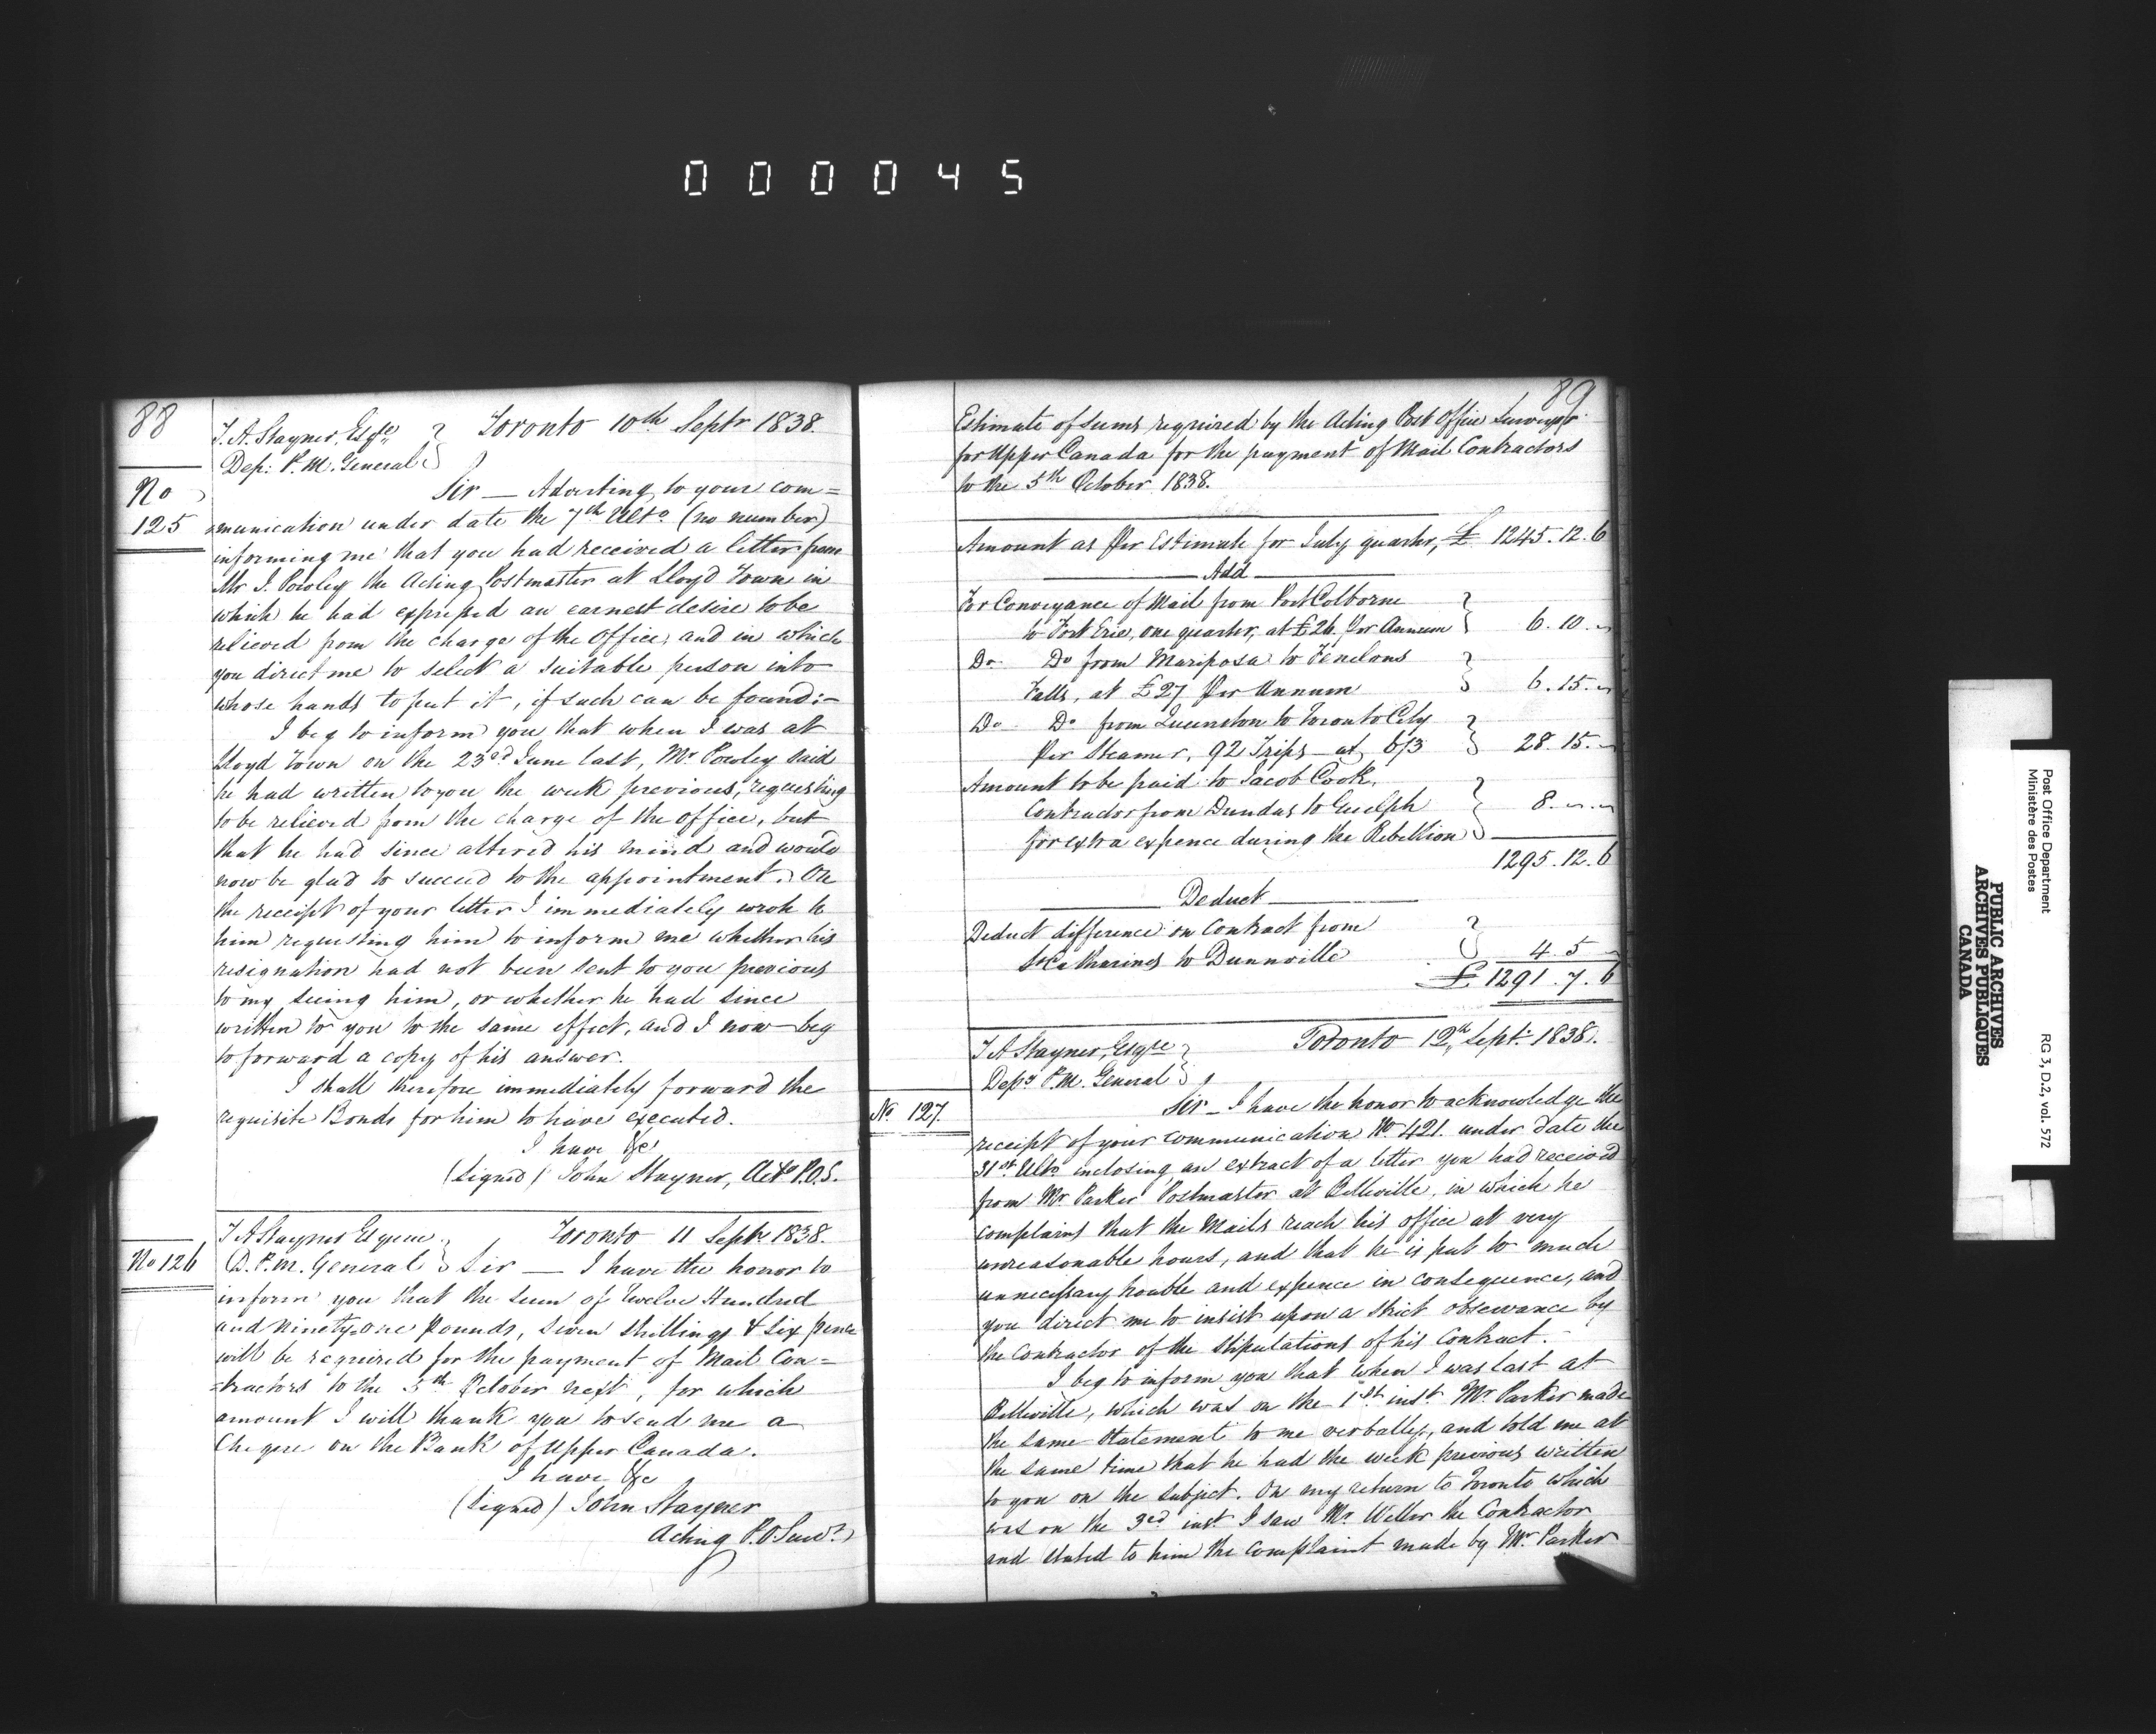 000045
88
T. A. Stayner, Esqre
Dep: P. M. General
Toronto 10th Septr 1838.
No
125
Sir — Adverting to your com=
=munication under date the 7th Ulto (no number)
informing me that you had received a letter from
Mr J. Powley the Acting Postmaster at Lloyd Town in
which he had expressed an earnest desire to be
relieved from the charge of the Office, and in which
you direct me to select a suitable person into
whose hands to put it, if such can be found:—
I beg to inform you that when I was at
Lloyd Town on the 23rd June last, Mr Powley said
he had written to you the week previous, requesting
to be relieved from the charge of the office, but
that he had since altered his mind and would
now be glad to succeed to the appointment. On
the receipt of your letter I immediately wrote to
him requesting him to inform me whether his
resignation had not been sent to you previous
to my seeing him, or whether he had since
written to you to the same effect, and I now beg
to forward a copy of his answer.
I shall therefore immediately forward the
requisite Bonds for him to have executed.
I have &c
(Signed) John Stayner, Actg P.O.S.
T A Stayner Esquire
D. P. M. General
Toronto 11 Septr 1838.
No 126
Sir — I have the honor to
inform you that the sum of Twelve Hundred
and Ninety-one Pounds, Seven Shillings & Six pence
will be required for the payment of Mail Con=
=tractors to the 5th October next, for which
amount I will thank you to send me a
Cheque on the Bank of Upper Canada.
I have &c
(Signed) John Stayner
Acting P.O Survr
89
Estimate of sums required by the Acting Post Office Surveyor
for Upper Canada for the payment of Mail Contractors
to the 5th October 1838.
Amount as Per Estimate for July quarter, £ 1245.12.6
Add
For Conveyance of Mail from Port Colborne
to Fort Erie, one quarter, at £26 Per Annum 6.10.„
Do Do from Mariposa to Fenelons
Falls, at £27 Per Annum 6.15.„
Do Do from Queenston to Toronto City
Per Steamer, 92 Trips at 6/3 28.15.„
Amount to be paid to Jacob Cook,
Contractor from Dundas to Guelph 8.„.„
for extra expence during the Rebellion
1295.12.6
Deduct
Deduct difference on Contract from
St Catharines to Dunnville 4.5 „
£ 1291.7.6
T A Stayner, Esqre
Depy P.M. General
Toronto 12th Sept: 1838.
No 127.
Sir — I have the honor to acknowledge the
receipt of your communication No 421 under date the
31st Ulto inclosing an extract of a letter you had received
from Mr Parker Postmaster at Belleville, in which he
complains that the Mails reach his office at very
unreasonable hours, and that he is put to much
unnecessary trouble and expence in consequence, and
you direct me to insist upon a strict observance by
the Contractor of the stipulations of his Contract.—
I beg to inform you that when I was last at
Belleville, which was on the 1st inst Mr Parker made
the same statement to me verbally, and told me at
the same time that he had the week previous written
to you on the subject. On my return to Toronto which
was on the 3rd inst I saw Mr Weller the Contractor
and stated to him the complaint made by Mr Parker
Post Office Department
Ministère des Postes
RG 3, D.2, vol. 572
PUBLIC ARCHIVES
ARCHIVES PUBLIQUES
CANADA